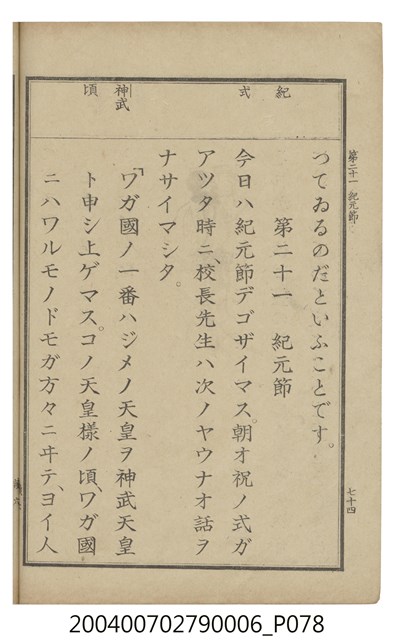 第二十一 紀元節
七十四
紀
式
神武
頃
つてゐるのだといふことです。
第二十一 紀元節
今日ハ紀元節デゴザイマス。朝オ祝ノ式ガ
アツタ時ニ、校長先生ハ次ノヤウナオ話ヲ
ナサイマシタ。
「ワガ國ノ一番ハジメノ天皇ヲ神武天皇
ト申シ上ゲマス。コノ天皇樣ノ頃、ワガ國
ニハワルモノドモガ方々ニヰテ、ヨイ人
200400702790006_P078